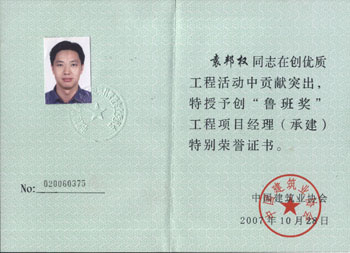 No: 020060375
袁邦权同志在创优质
工程活动中贡献突出，
特授予创“鲁班奖”
工程项目经理（承建）
特别荣誉证书。
中国建筑业协会
2007年10月28日
中国建筑业协会